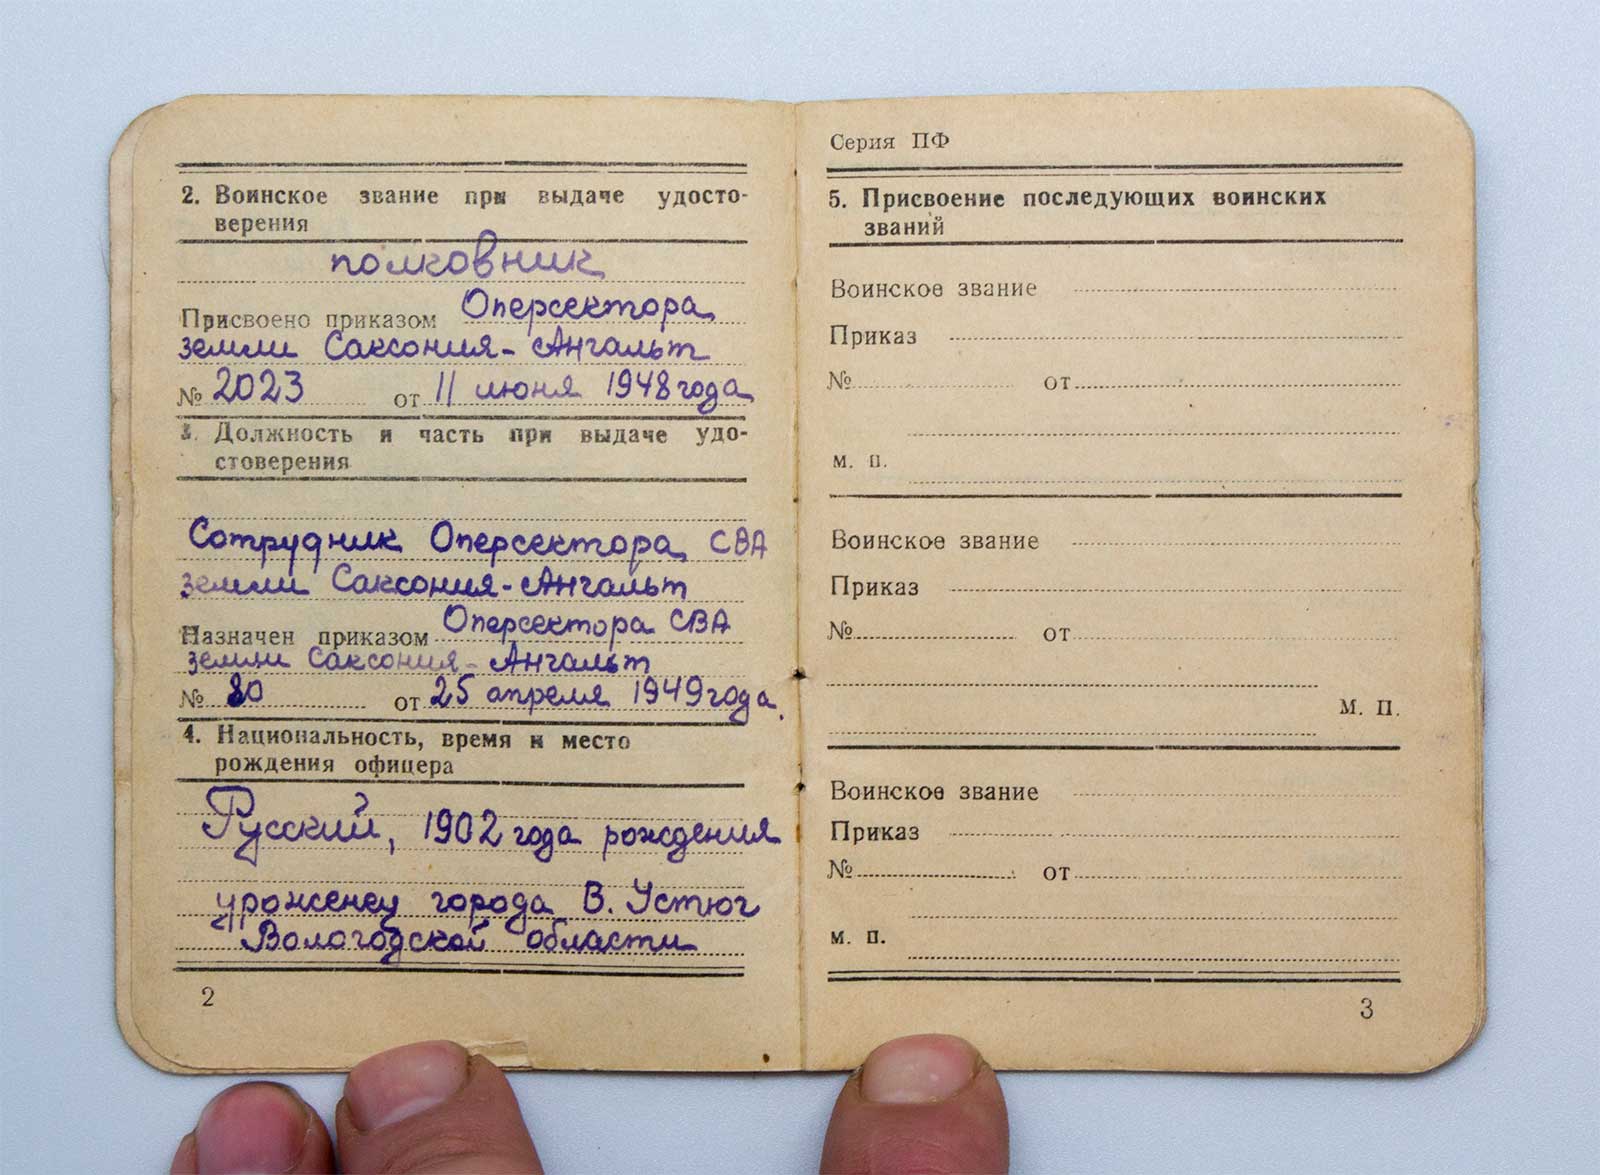 2. Воинское звание при выдаче удосто-
верения
полковник
Присвоено приказом Оперсектора
земли Саксония-Ангальт
№ 2023 от 11 июня 1948 года
3. Должность и часть при выдаче удо-
стоверения
Сотрудник Оперсектора СВА
земли Саксония-Ангальт
Назначен приказом Оперсектора СВА
земли Саксония-Ангальт
№ 80 от 25 апреля 1949 года.
4. Национальность, время и место
рождения офицера
Русский, 1902 года рождения
уроженец города В. Устюг
Вологодской области
2
Серия ПФ
5. Присвоение последующих воинских
званий
Воинское звание
Приказ
№ от
М. П.
Воинское звание
Приказ
№ от
М. П.
Воинское звание
Приказ
№ от
М. П.
3